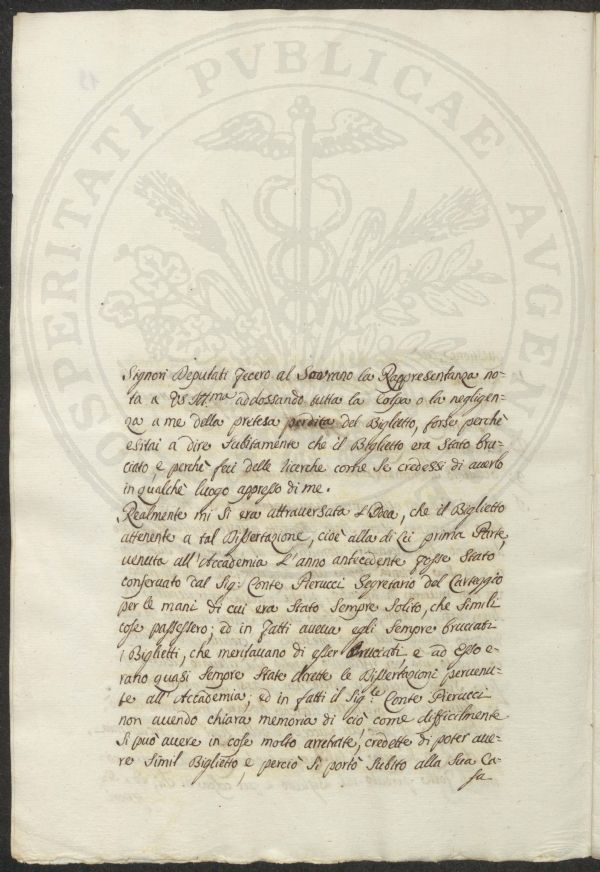 PROSPERITATI PVBLICAE AVGEN
Signori Deputati fecero al Sovrano la Rappresentanza no-
ta a VS Ill.ma addossando tutta la Colpa o la negligen-
za a me della pretesa perdita del Biglietto, forse perchè
esitai a dire subitamente che il Biglietto era Stato bru-
ciato, e perchè feci delle ricerche come se credessi di averlo
in qualche luogo appresso di me.
Realmente mi si era attraversata l'Idea, che il Biglietto
attenente a tal Dissertazione, cioè alla di lei prima Parte,
venuta all'Accademia l'anno antecedente fosse Stato
conservato dal Sig: Conte Pierucci Segretario del Carteggio
per le mani di cui era Stato Sempre Solito, che Simili
cose passassero; ed in fatti aveva egli Sempre bruciati
i Biglietti, che meritavano di esser Bruciati e ad Esso e-
rano quasi Sempre State dirette le Dissertazioni pervenu-
te all'Accademia; ed in fatti il Sig.re Conte Pierucci
non avendo chiara memoria di ciò come difficilmente
Si può avere in cose molto arretrate, credette di poter ave-
re Simil Biglietto, e perciò Si portò Subito alla Sua Ca-
sa